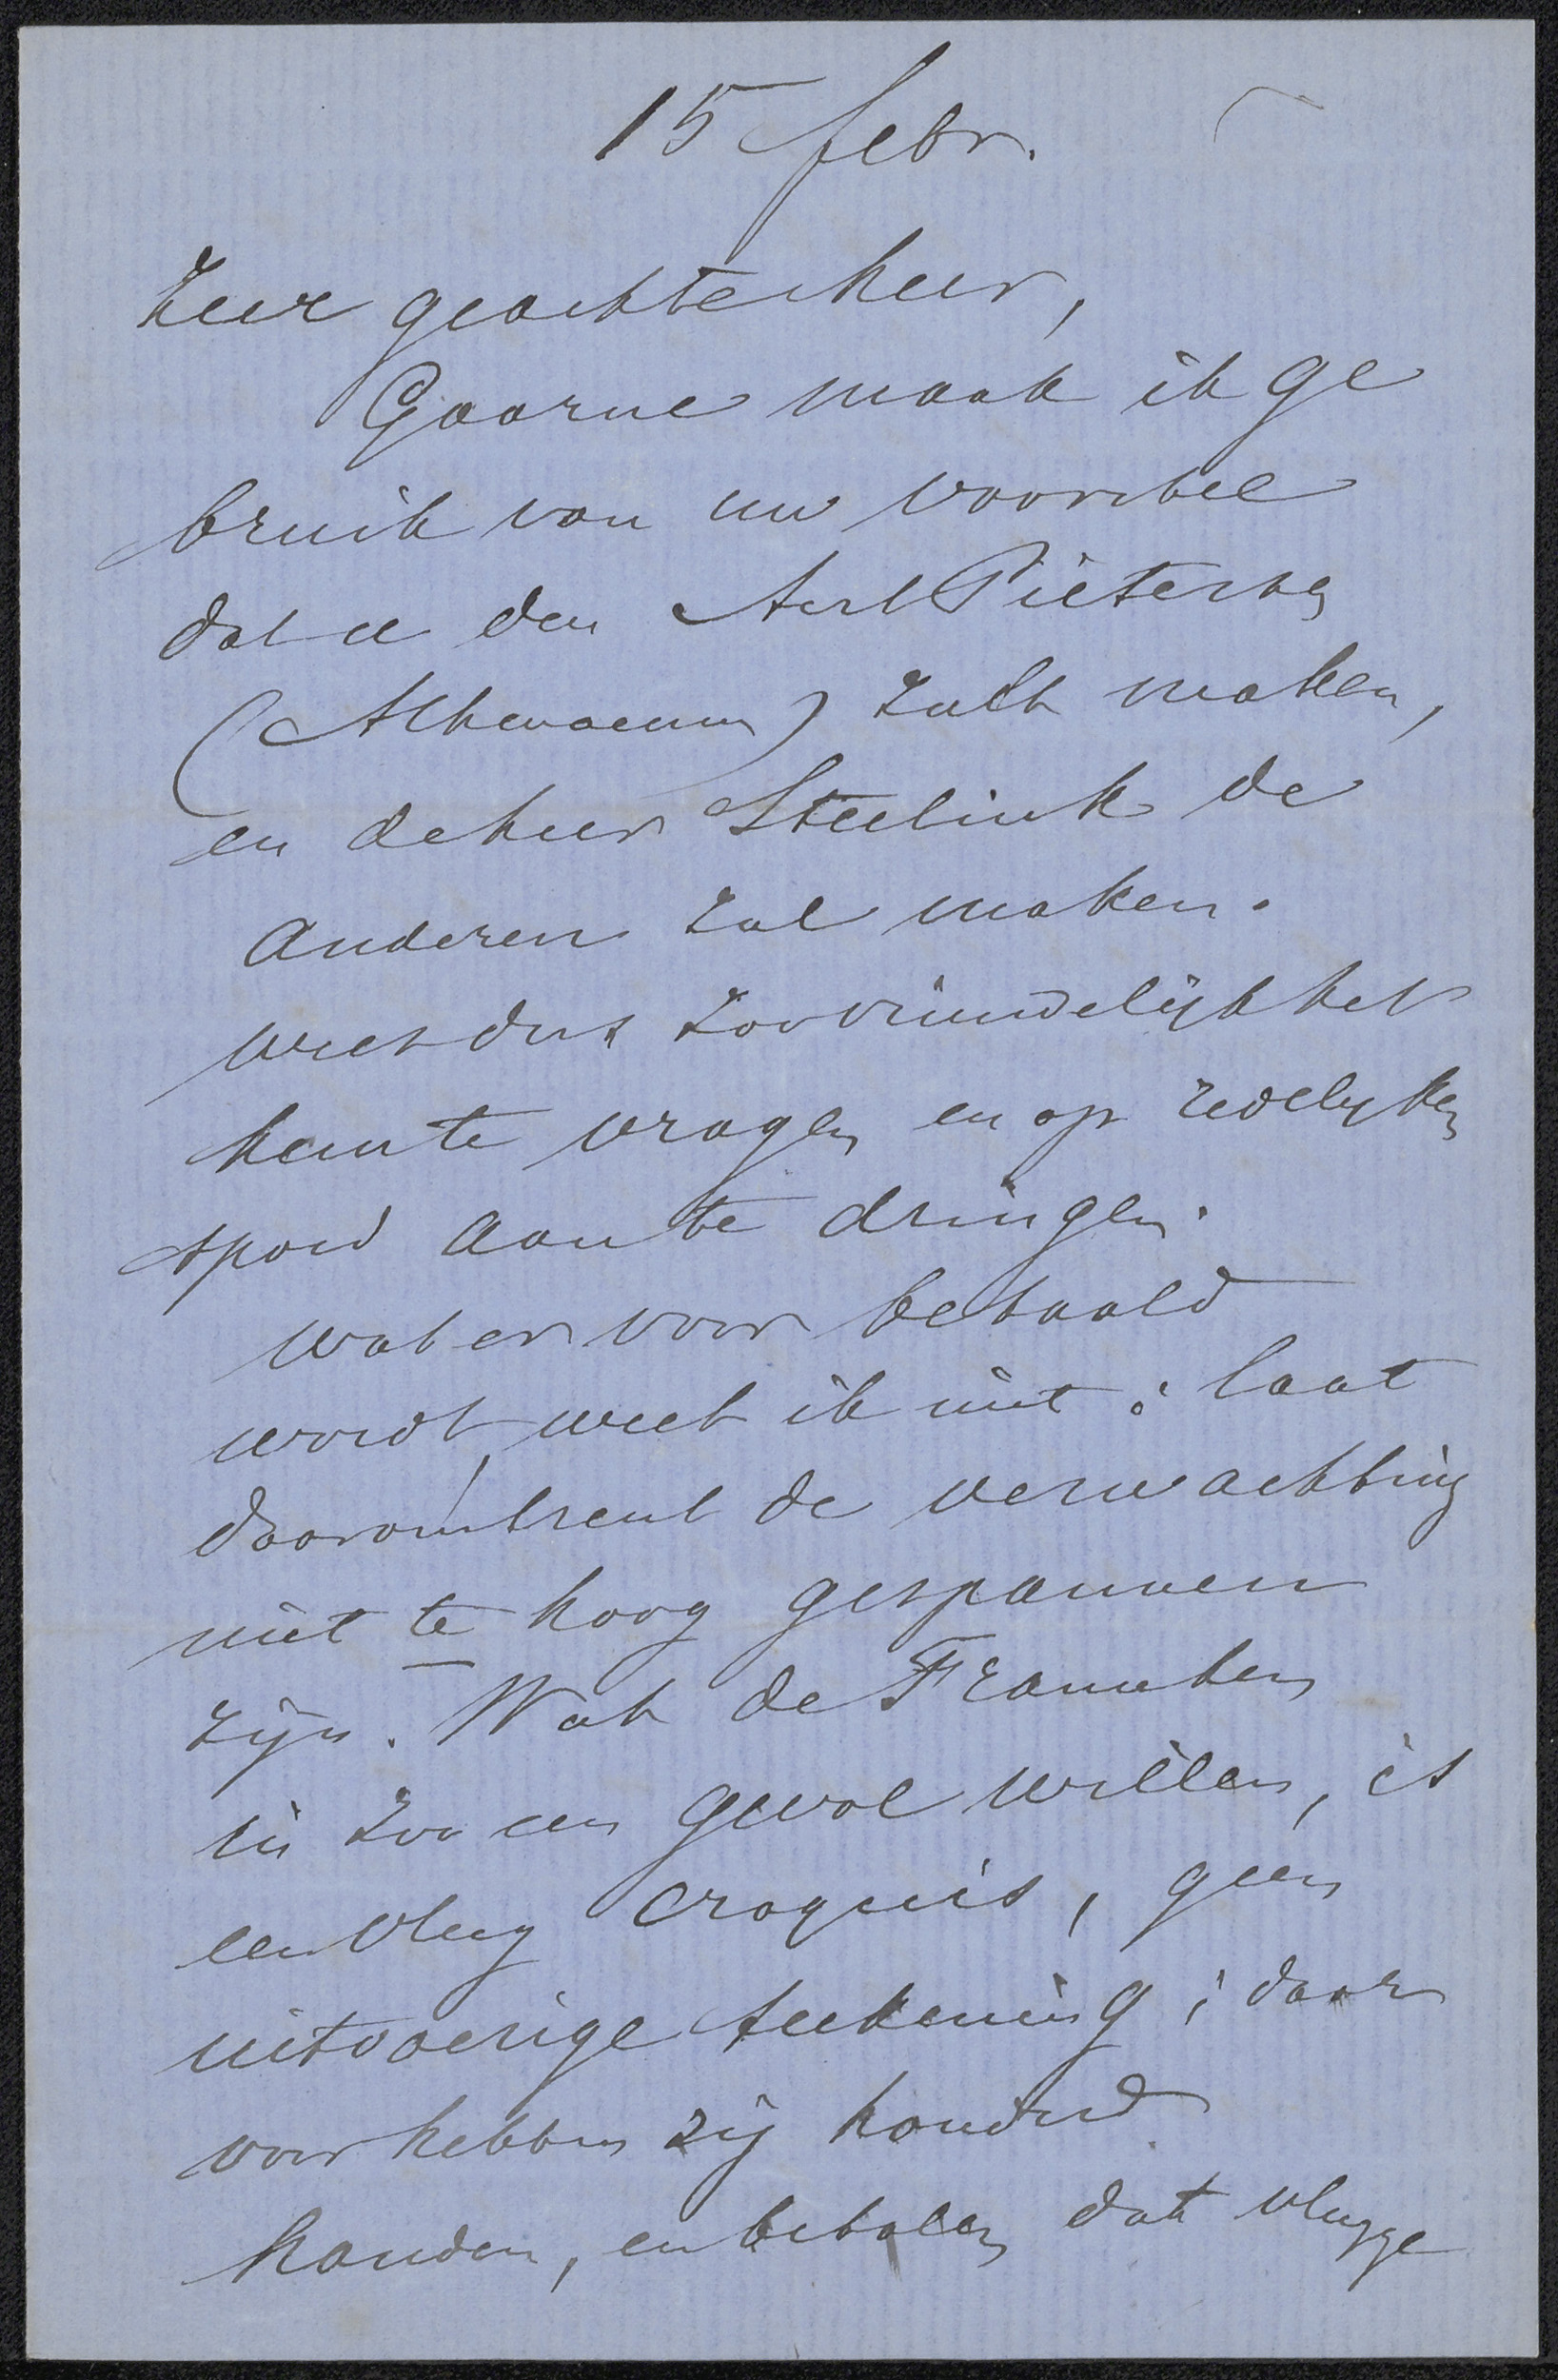 15 febr.
Zeer geachte heer,
Gaarne maak ik ge
bruik van uw voorstel
dat u den Aert Pietersen
(Athenaeum) zult maken,
en de heer Steelink de
anderen zal maken.
Wees dus zoo vriendelijk het
hem te vragen en op redelyken
spoed aan te dringen.
wat er voor betaald
wordt, weet ik niet; laat
daaromtrent de verwachting
niet te hoog gespannen
zijn. Wat de Franschen
in zoo een geval willen, is
een vlug croquis, geen
uitvoerige teekening; daar
voor hebben zij honderd
handen, en betalen dat vlugge